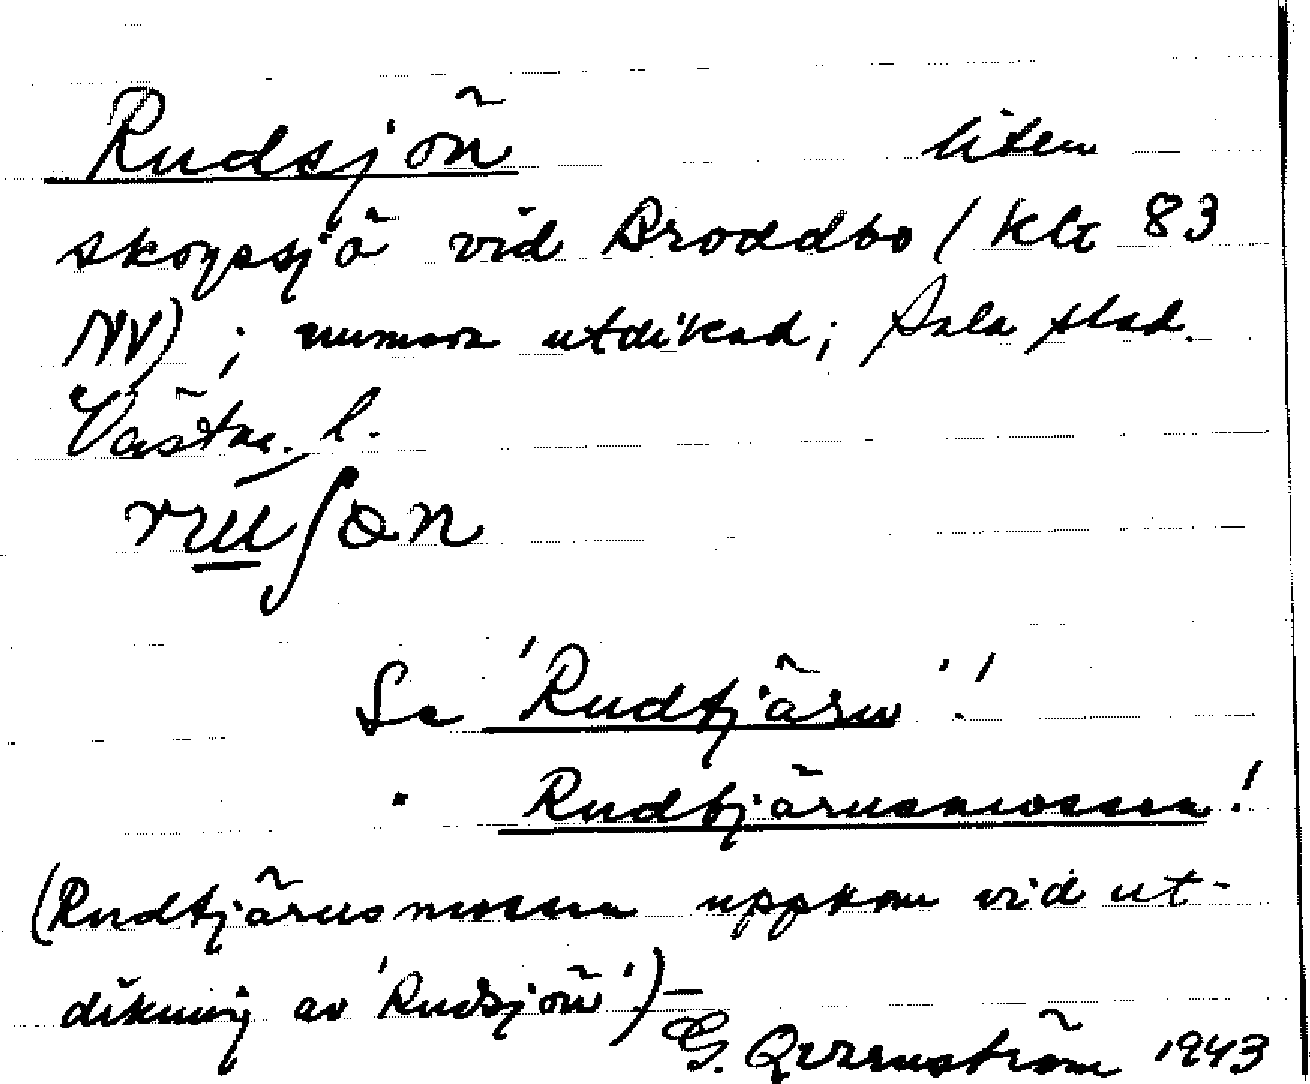 Rudsjön liten
skogssjö vid Broddbo (Kbl 83
NV); numera utdikad; Sala stad.
Västm. l.
ruʃøn
Se 'Rudtjärn'!
" Rudtjärnsmossen!
(Rudtjärnsmossen uppkom vid ut-
dikning av 'Rudsjön')—
G. Qvarnström 1943